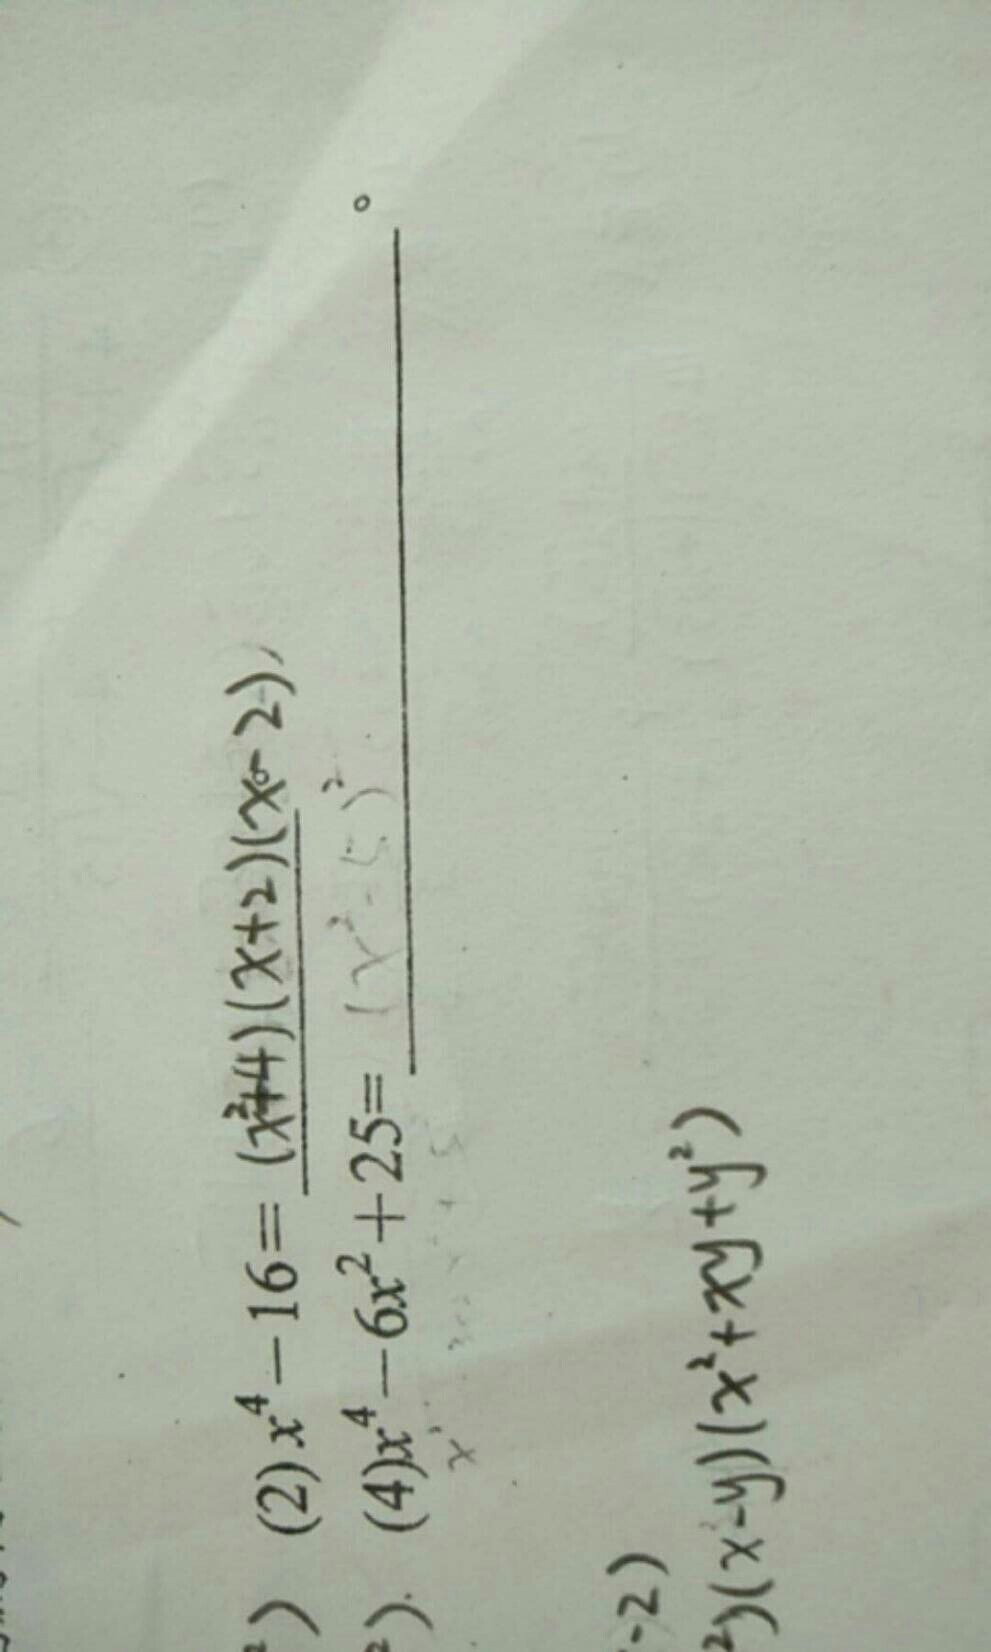 ²) (2)x⁴-16=(x²+4)(x+2)(x-2),
²). (4)x⁴-6x²+25=(x²-5)²。
-2)
²)(x-y)(x²+xy+y²)